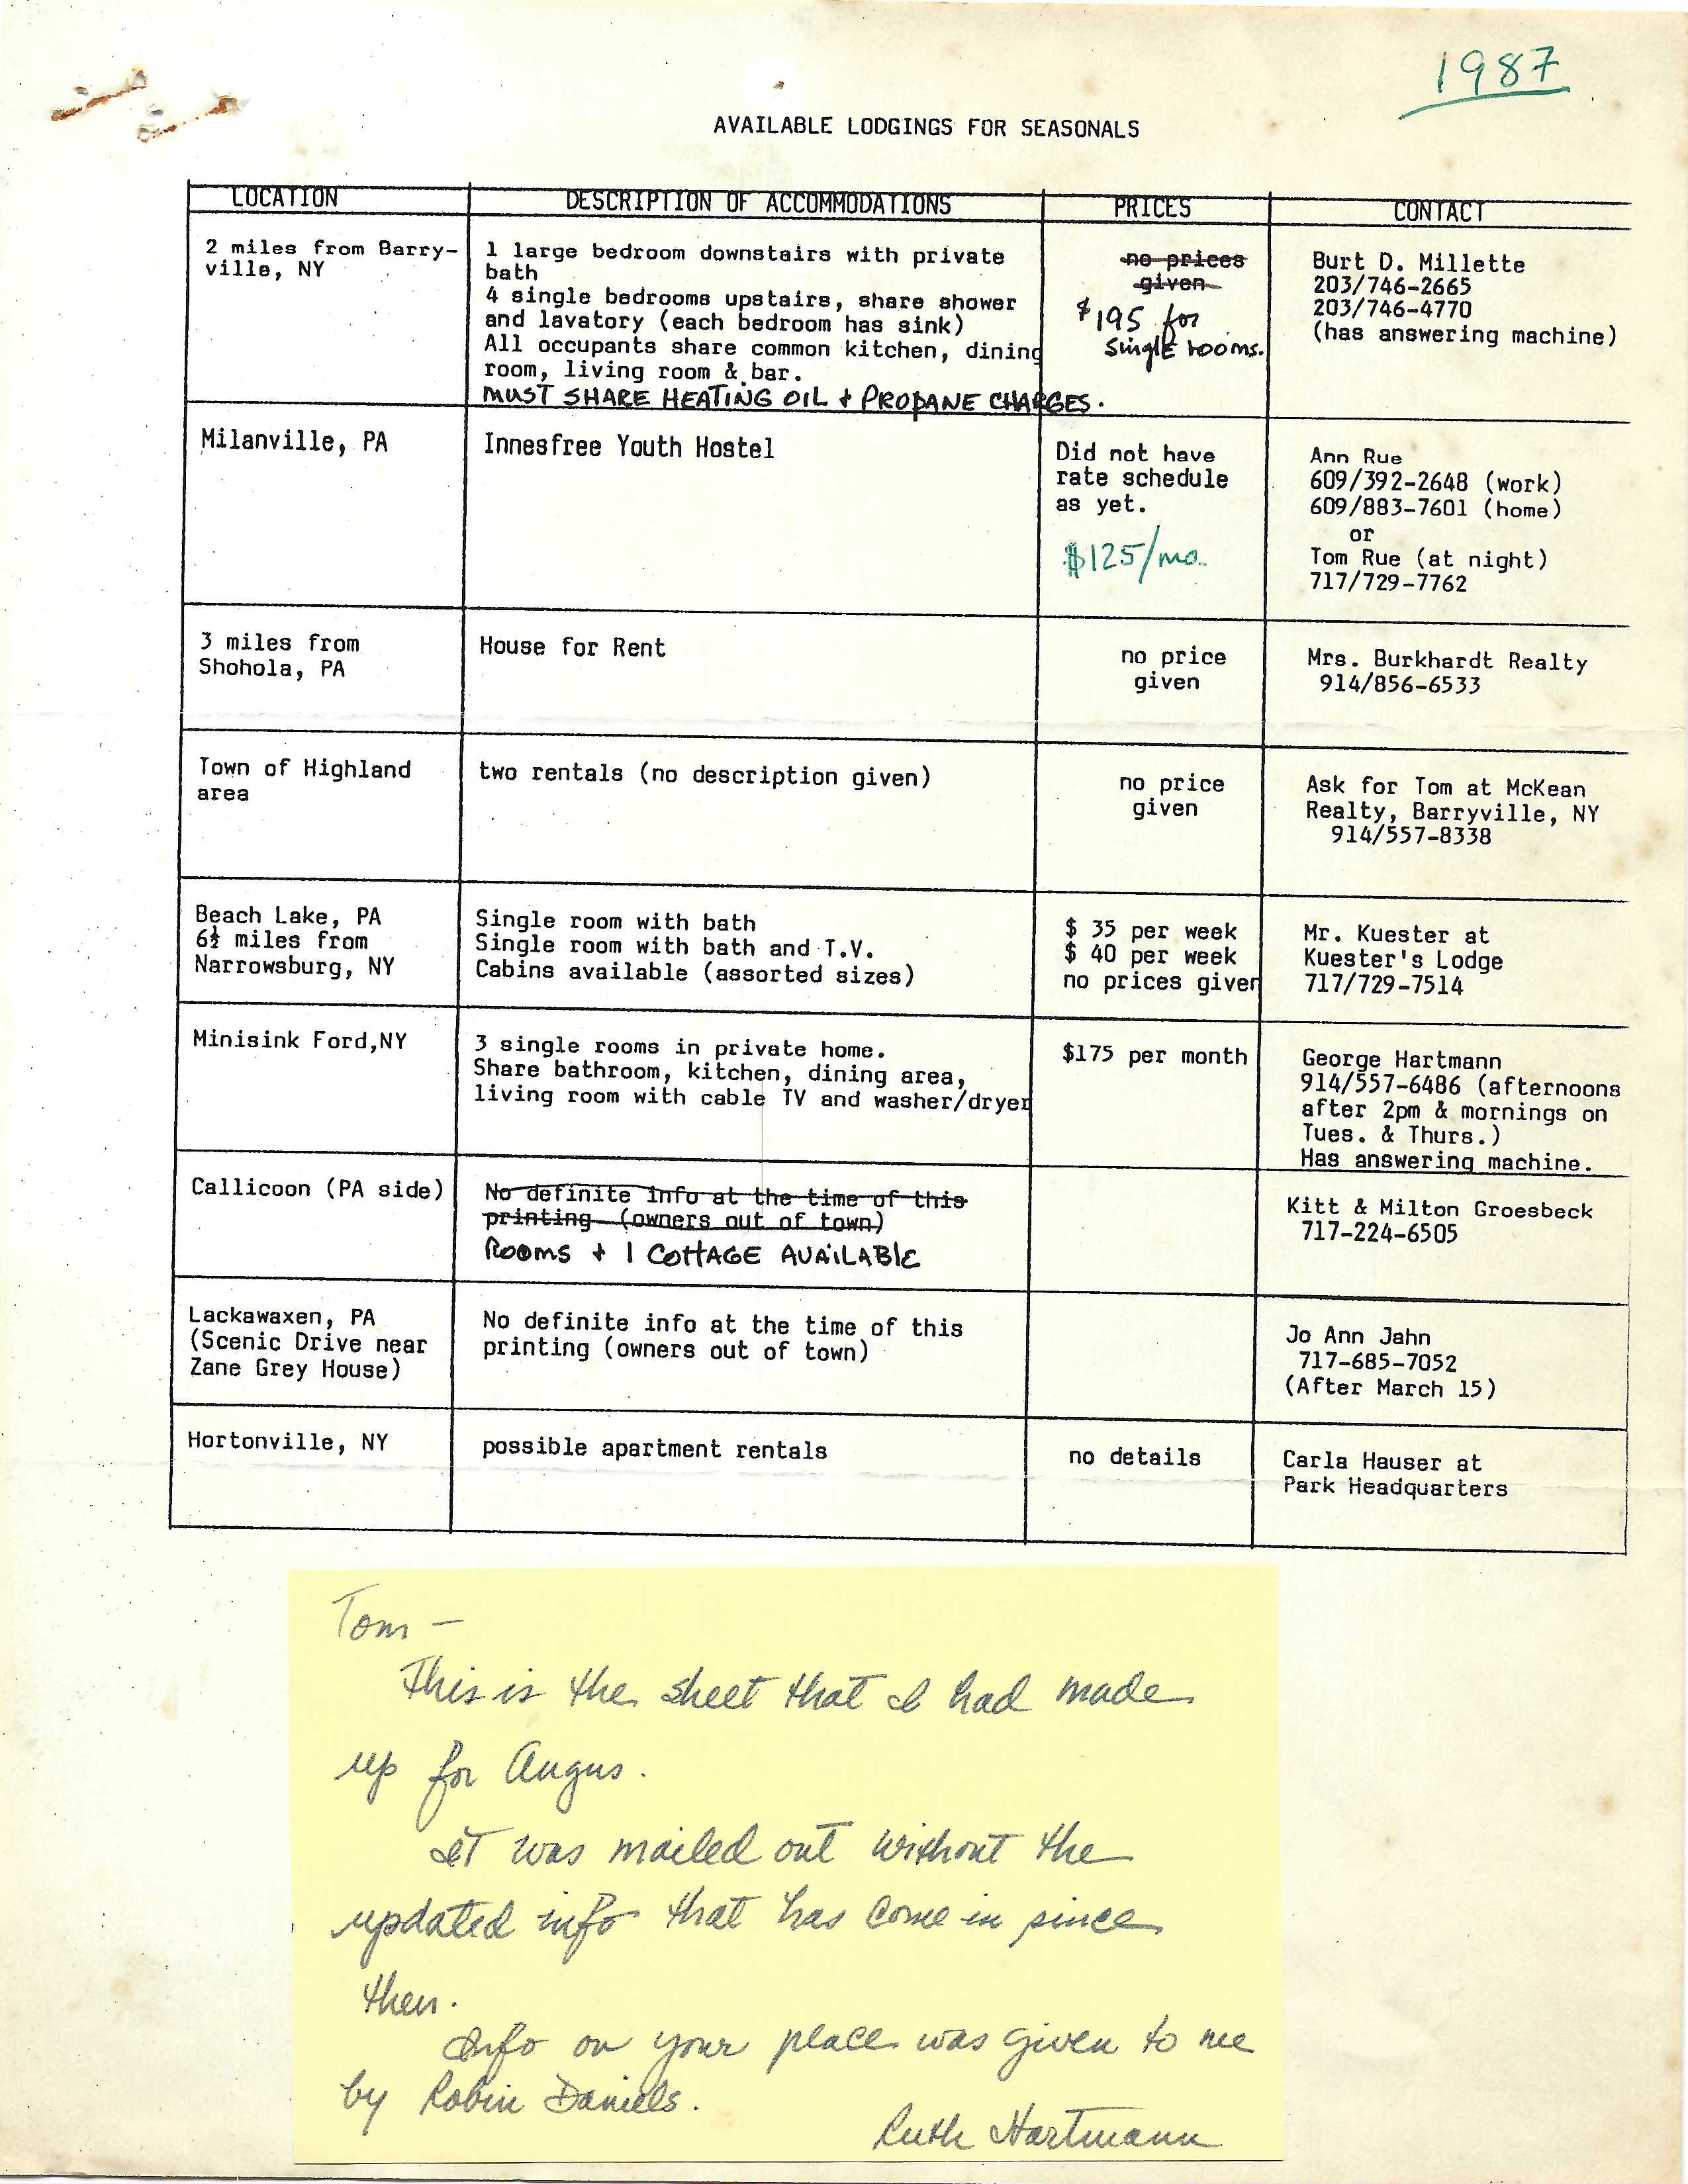 1987
AVAILABLE LODGINGS FOR SEASONALS
LOCATION DESCRIPTION OF ACCOMMODATIONS PRICES CONTACT
2 miles from Barry-
ville, NY
1 large bedroom downstairs with private
bath
4 single bedrooms upstairs, share shower
and lavatory (each bedroom has sink)
All occupants share common kitchen, dining
room, living room & bar.
MUST SHARE HEATING OIL + PROPANE CHARGES.
no prices
given
$195 for
single rooms.
Burt D. Millette
203/746-2665
203/746-4770
(has answering machine)
Milanville, PA
Innesfree Youth Hostel
Did not have
rate schedule
as yet.
$125/mo.
Ann Rue
609/392-2648 (work)
609/883-7601 (home)
or
Tom Rue (at night)
717/729-7762
3 miles from
Shohola, PA
House for Rent
no price
given
Mrs. Burkhardt Realty
914/856-6533
Town of Highland
area
two rentals (no description given)
no price
given
Ask for Tom at McKean
Realty, Barryville, NY
914/557-8338
Beach Lake, PA
6½ miles from
Narrowsburg, NY
Single room with bath
Single room with bath and T.V.
Cabins available (assorted sizes)
$ 35 per week
$ 40 per week
no prices given
Mr. Kuester at
Kuester's Lodge
717/729-7514
Minisink Ford,NY
3 single rooms in private home.
Share bathroom, kitchen, dining area,
living room with cable TV and washer/dryer
$175 per month
George Hartmann
914/557-6486 (afternoons
after 2pm & mornings on
Tues. & Thurs.)
Has answering machine.
Callicoon (PA side)
No definite info at the time of this
printing (owners out of town)
ROOMS + 1 COTTAGE AVAILABLE
Kitt & Milton Groesbeck
717-224-6505
Lackawaxen, PA
(Scenic Drive near
Zane Grey House)
No definite info at the time of this
printing (owners out of town)
Jo Ann Jahn
717-685-7052
(After March 15)
Hortonville, NY
possible apartment rentals
no details
Carla Hauser at
Park Headquarters
Tom —
This is the sheet that I had made
up for Angus.
It was mailed out without the
updated info that has come in since
then.
Info on your place was given to me
by Robin Daniels.
Ruth Hartmann